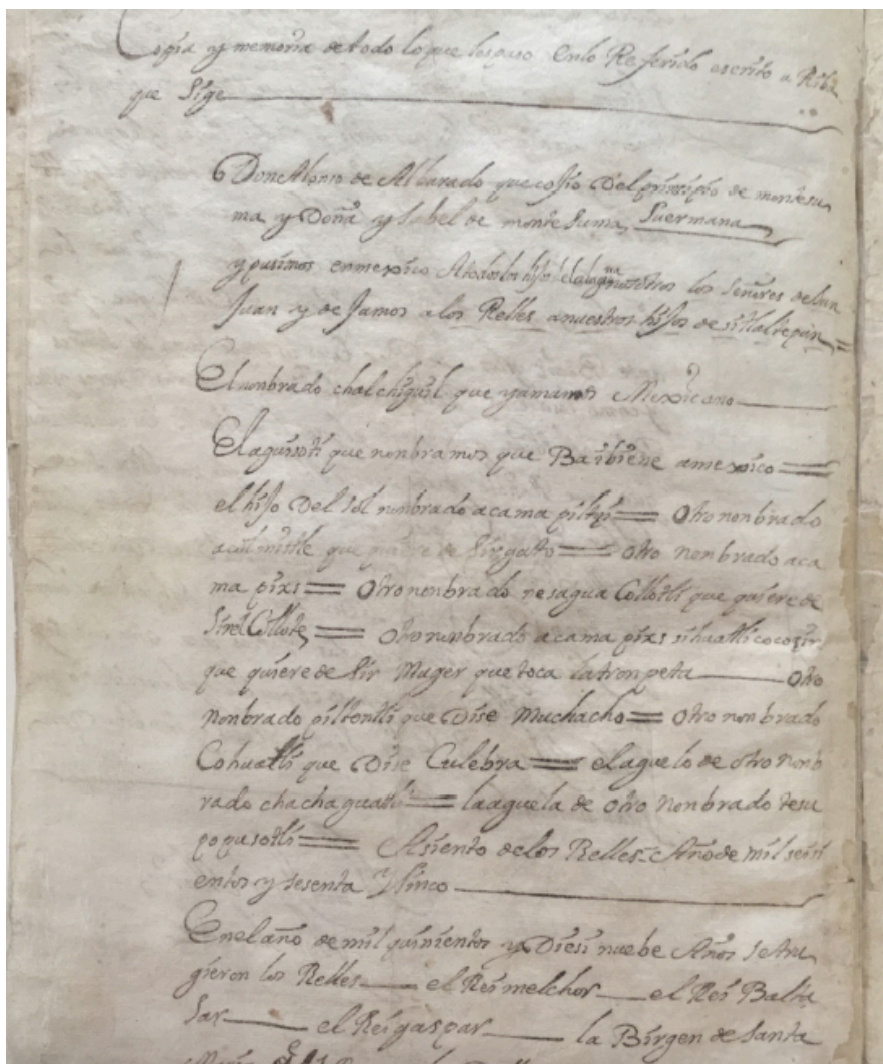 Copia y memoria de todo lo que los puso en lo Referido escrito a Riba
que Sige
Don Alonso de Albarado que cojio Del prinsipio de montesu
ma y Doña ysabel de monte Suma Suermana
y pusimos en mexico A todos los hijos nosotros los Señores de Sun
Juan y de Jamos a los Relles a nuestros hijos de sitlaltepan
El nonbrado chalchiguil que yamamos Mexicano
El aguisotl que nonbramos que Baibiene a mexico
el hijo Del Sol nonbrado acama piltzi otro nonbrado
aculmistle que quiere de Sir gato otro nonbrado aca
ma pixs Otro nonbrado nesagua Collotli que quiere de
Sirel Collote otro nonbrado acama pixs sihuatli cocosir
que quiere de Sir Muger que toca latronpeta Otro
nonbrado piltontli que Dise Muchacho otro nonbrado
Cohuatli que Dise Culebra el aguelo de otro nonb
rado chachaguatli la aguela de otro nonbrado tesu
popusotli Asiento de los Relles Año de mil seisi
entos y sesenta y Sinco
En el año de mil quinientos y Diesi nuebe Años Setru
gieron los Relles el Rei melchor el Rei Balta
Sar el Rei gaspar la Birgen de Santa